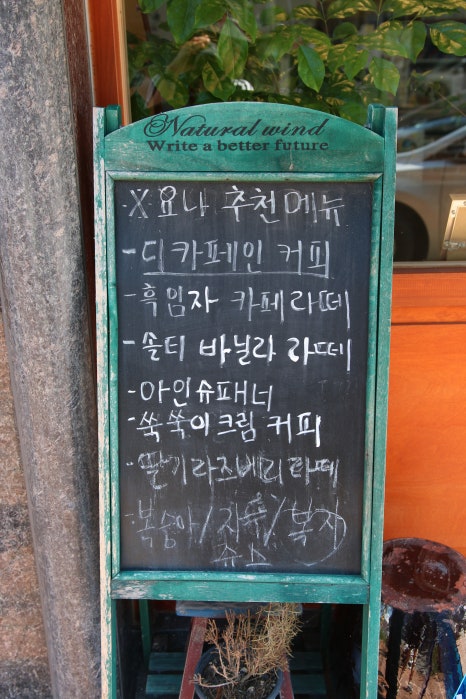 Natural wind
Write a better future
※요나 추천메뉴
-디카페인 커피
-흑임자 카페라떼
-솔티 바닐라 라떼
-아인슈패너
-쑥쑥이크림커피
-딸기라즈베리라떼
-복숭아/자몽/복자
쥬스